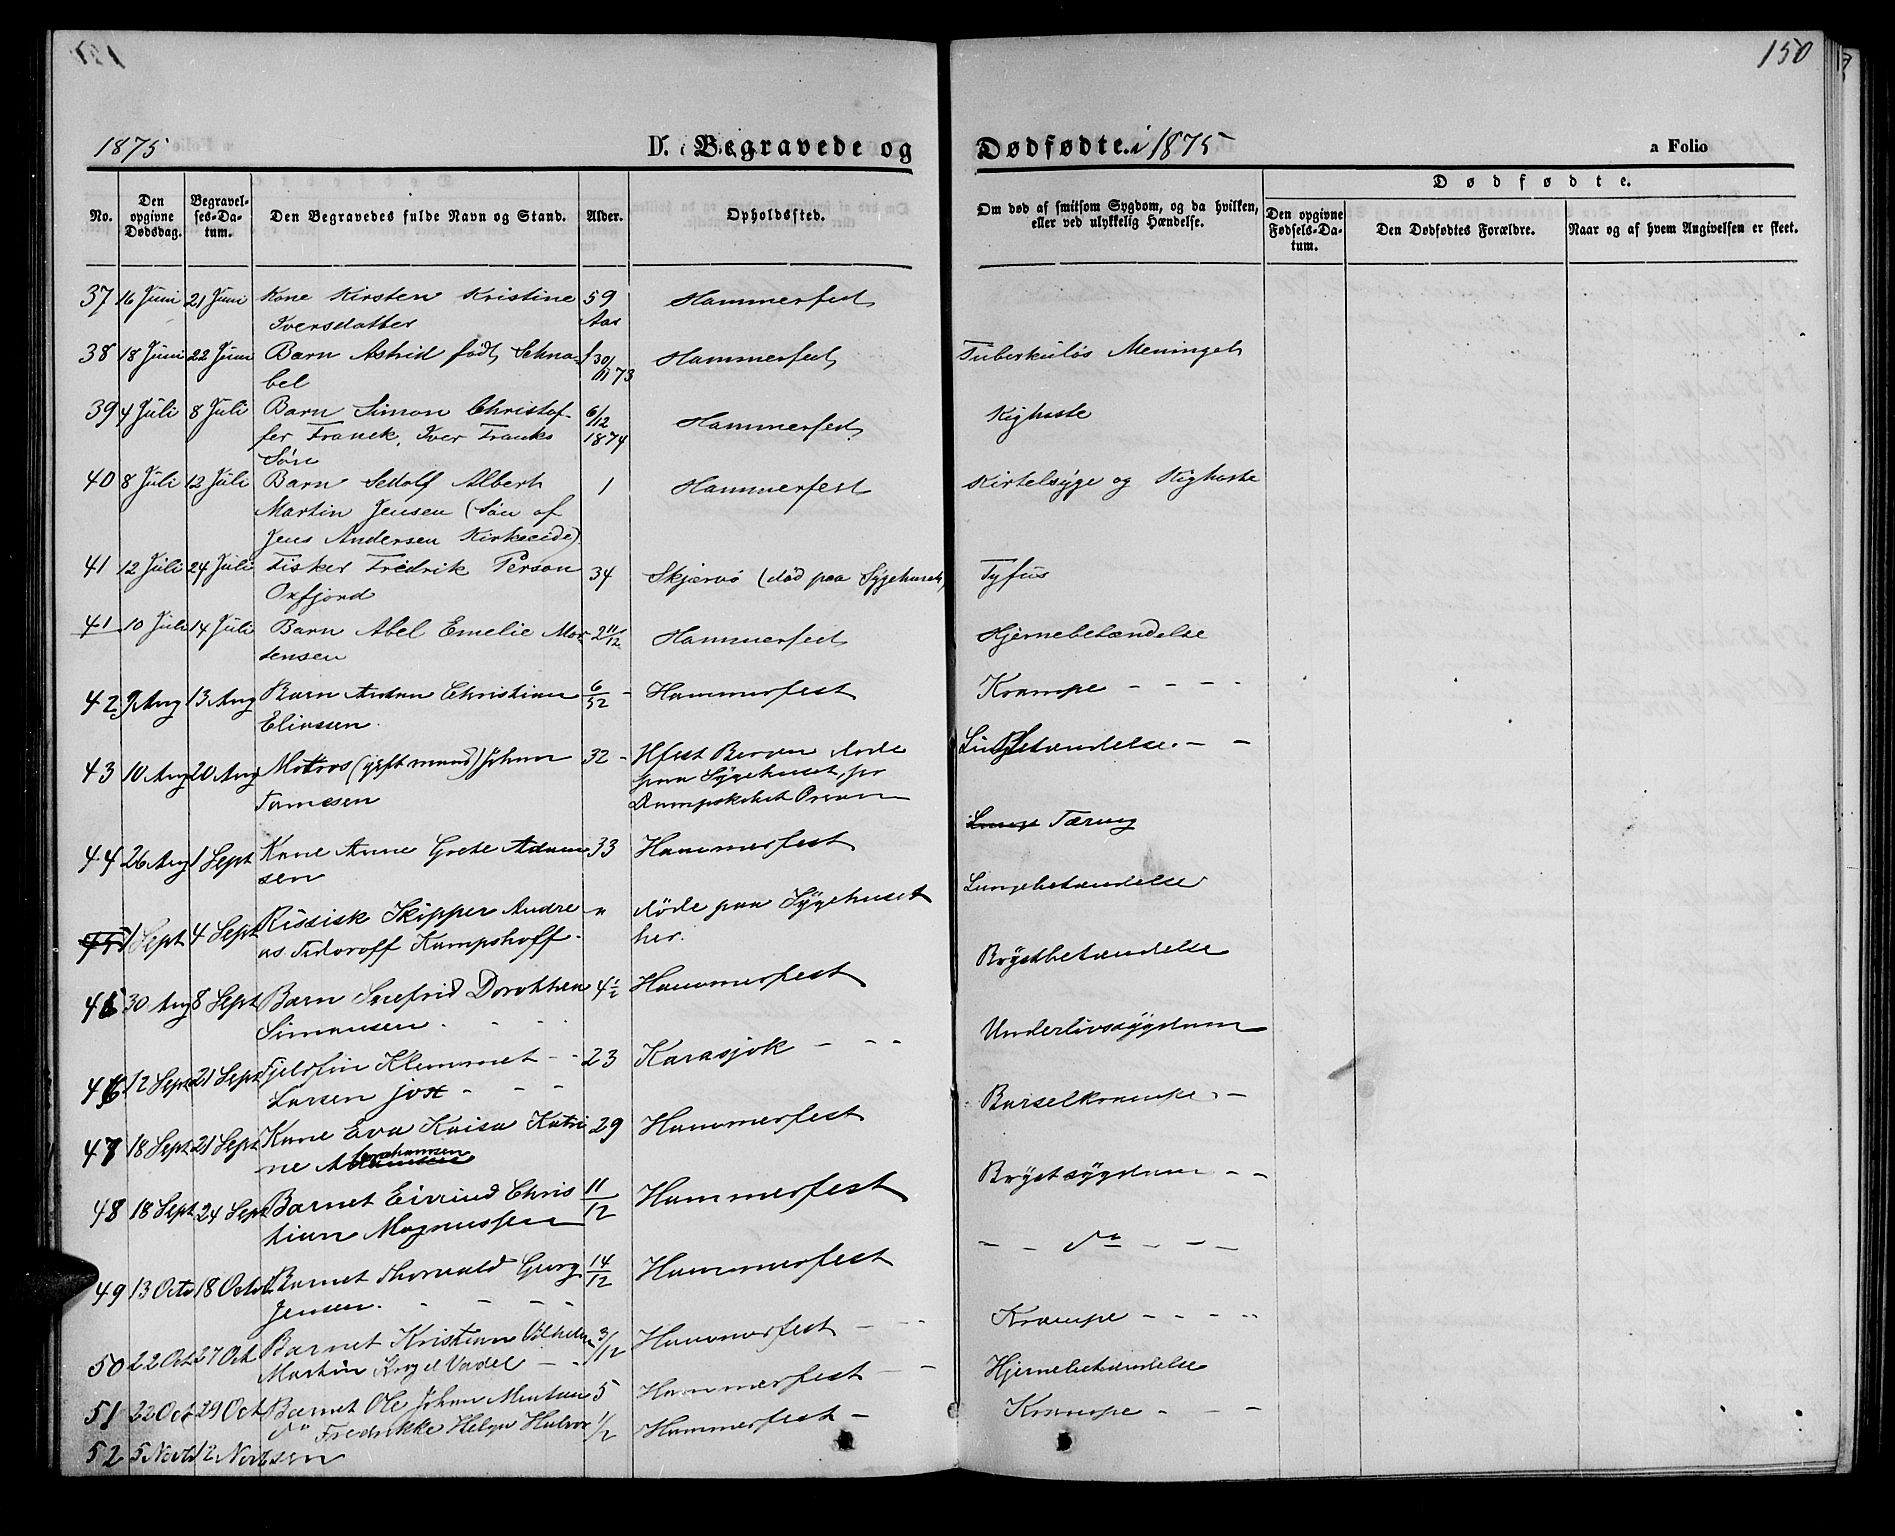 150
1875
D. Begravede og Dødfødte i 1875
a Folio
No.
Den opgivne Dødsdag.
Begravelses-Datum.
Den Begravedes fulde Navn og Stand.
Alder.
Opholdssted.
Om død af smitsom Sygdom, og da hvilken, eller ved ulykkelig Hændelse.
Dødfødte.
Den opgivne Fødsels-Datum.
Den Dødfødtes Forældre.
Naar og af hvem Angivelsen er skeet.
37 16 Juni 21 Juni Kone Kirsten Kristine 59 Hammerfest
Iversdatter Aar
38 18 Juni 22 Juni Barn Astrid født Schna- f 30/ Hammerfest Tuberkuløs Meninget
bel 11 73
39 4 Juli 8 Juli Barn Simon Christof- 6/12 Hammerfest Kighoste
fer Franck, Iver Francks 1874
Søn
40 8 Juli 12 Juli Barn Sedolf Albert 1 Hammerfest Kirtelsyge og Kighoste
Martin Jensen (Søn af
Jens Andersen Kirkeeide)
41 12 Juli 24 Juli Fisker Fredrik Person 34 Skjervø (død paa Sygehuset) Tyfus
Oxfjord
41 10 Juli 14 Juli Barn Abel Emelie Mor- 2 11/12 Hammerfest Hjernebetændelse
tensen
42 9 Aug 13 Aug Barn Anton Christian 6/52 - Hammerfest Krampe - - - -
Eliassen.
43 10 Aug 20 Aug Matros (gift mand) Johan 32 - Hfest Bergen døde Lungebetændelse. - -
Tomesen paa Sygehuset, fr
Dampskibet
44 26 Aug 1 Sept Kone Anne Grete Adam 33 Hammerfest Lunge Tæring
sen
45 1 Sept 4 Sept Rissisk Skipper Andre - " døde paa Sygehuset Lungebetændelse
as Fidoroff Kampshoff - her.
45 30 Aug 8 Sept Barn Snefrid Dorothea 4 1/2 Hammerfest Brystbetændelse
Simonsen.
46 12 Sept 21 Sept Fjeldfin Klemmet - - 23 Karasjok - - - Underlivssygdom
Larsen Jox - - -
47 18 Sept 21 Sept Kone Eva Kaisa Katri 29 Hammerfest Barselkrampe. -
ne Abrahamsen
48 18 Sept 24 Sept Barnet Eivind Chris 11/12 Hammerfest Brystsygdom - -
tian Magnussen
49 13 Octo 18 Octo Barnet Thorvald Georg 14/12 Hammerfest - - do - - -
Jensen. - - - -
50 22 Oct 27 Oct Barnet Kristian Vilhelm 3/12 Hammerfest - - Krampe - - - -
Martin Krogel Vadel - -
51 22 Oct 29 Oct Barnet Ole Johan 5 Hammerfest - - Hjernebetændelse
52 5 Novb 12 Novb do Fredrikke Helga Halvor 1/2 Hammerfest - Krampe - - -
sen